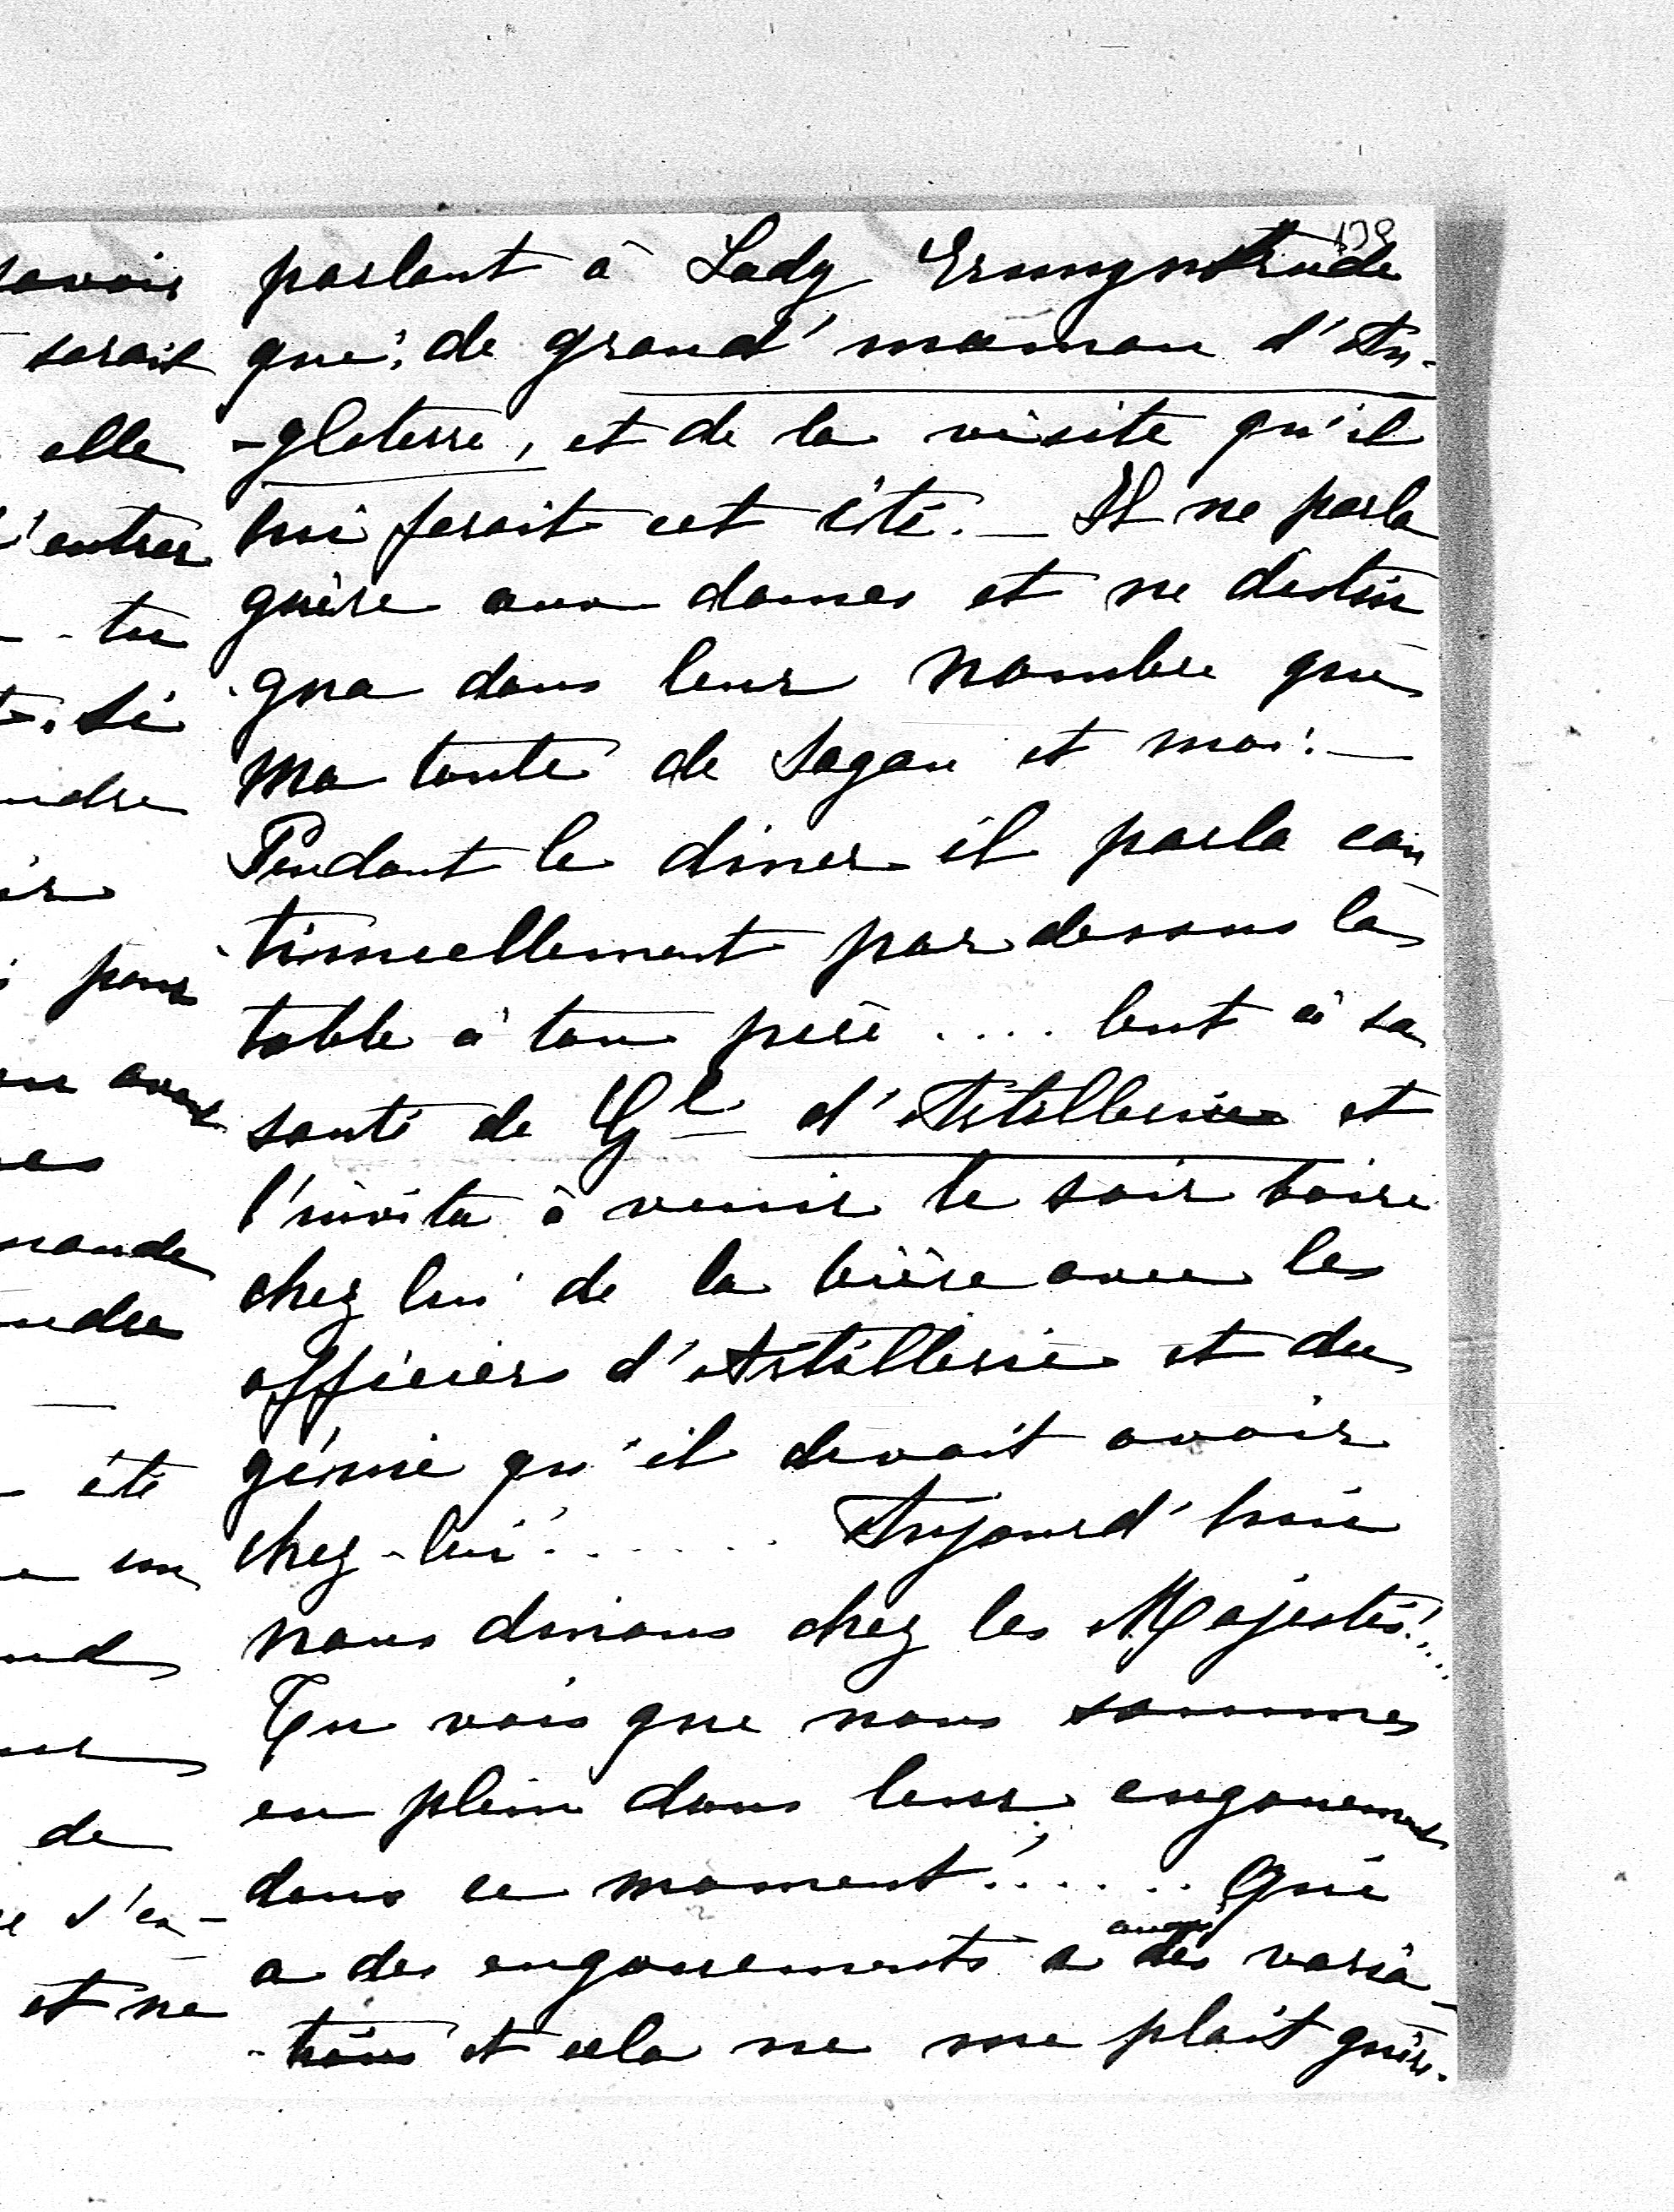 savoir
serait
elle
d'entrer
- tu
. Si
ndre
ir
pour
avant
es
mande
ndre
été
un
nd
de
s'en-
et ne
139
parlant à Lady Ermyntrude
que: de grand' maman d'An-
-gleterre, et de la visite qu'il
lui ferait cet été. _ Il ne parla
guère aux dames et ne distin
-gua dans leur nombre que
Ma tante de Sagan et moi! _
Pendant le diner il parla con
-tinuellement par dessous la
table à ton père .... but à sa
santé de Gl d'Artillerie et
l'invita à venir le soir boire
chez lui de la bière avec les
officiers d'Artillerie et du
génie qu'il devait avoir
chez-lui! ...... Aujourd'hui
nous dinons chez les Majestés!...
Tu vois que nous sommes
en plein dans leur engouement
dans ce moment! ..... Qui
a des engouements a aussi des varia-
-tions et cela ne me plait guère.